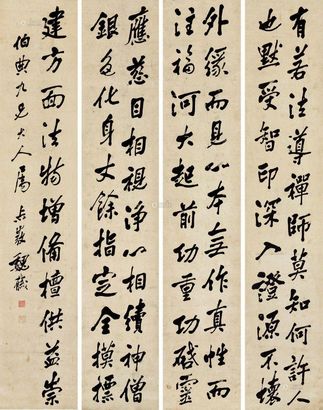 有若法導禪師莫知何許人
也默受智印深入證源不壞
外緣而見心本無作真性而
注福河大起前功重功碱靈
應慈目相視淨心相續神僧
銀色化身丈餘指定全摸標
建方面法物增備檀供益崇
伯典九兄大人屬